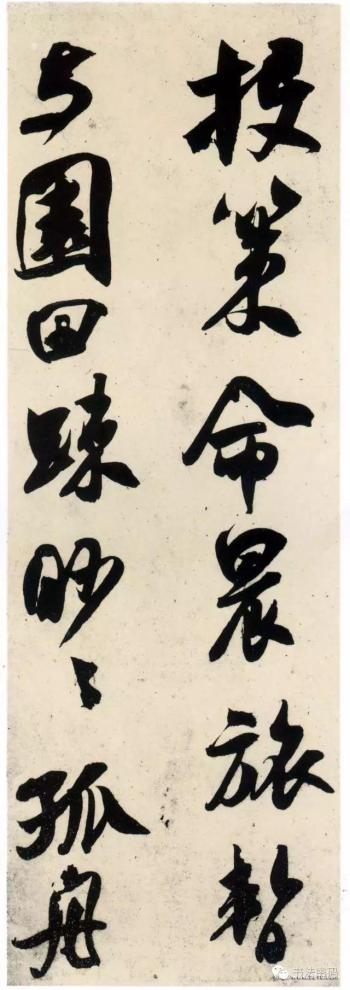 投策命晨旅暫
与園田踈眇々孤舟